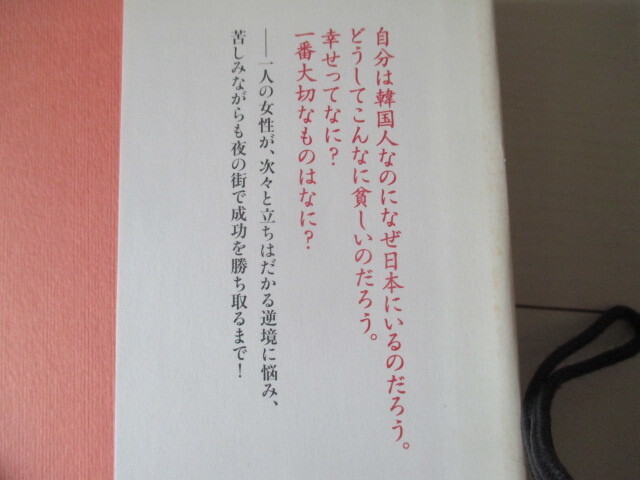 自分は韓国人なのになぜ日本にいるのだろう。
どうしてこんなに貧しいのだろう。
幸せってなに?
一番大切なものはなに?
――一人の女性が、次々と立ちはだかる逆境に悩み、
苦しみながらも夜の街で成功を勝ち取るまで!